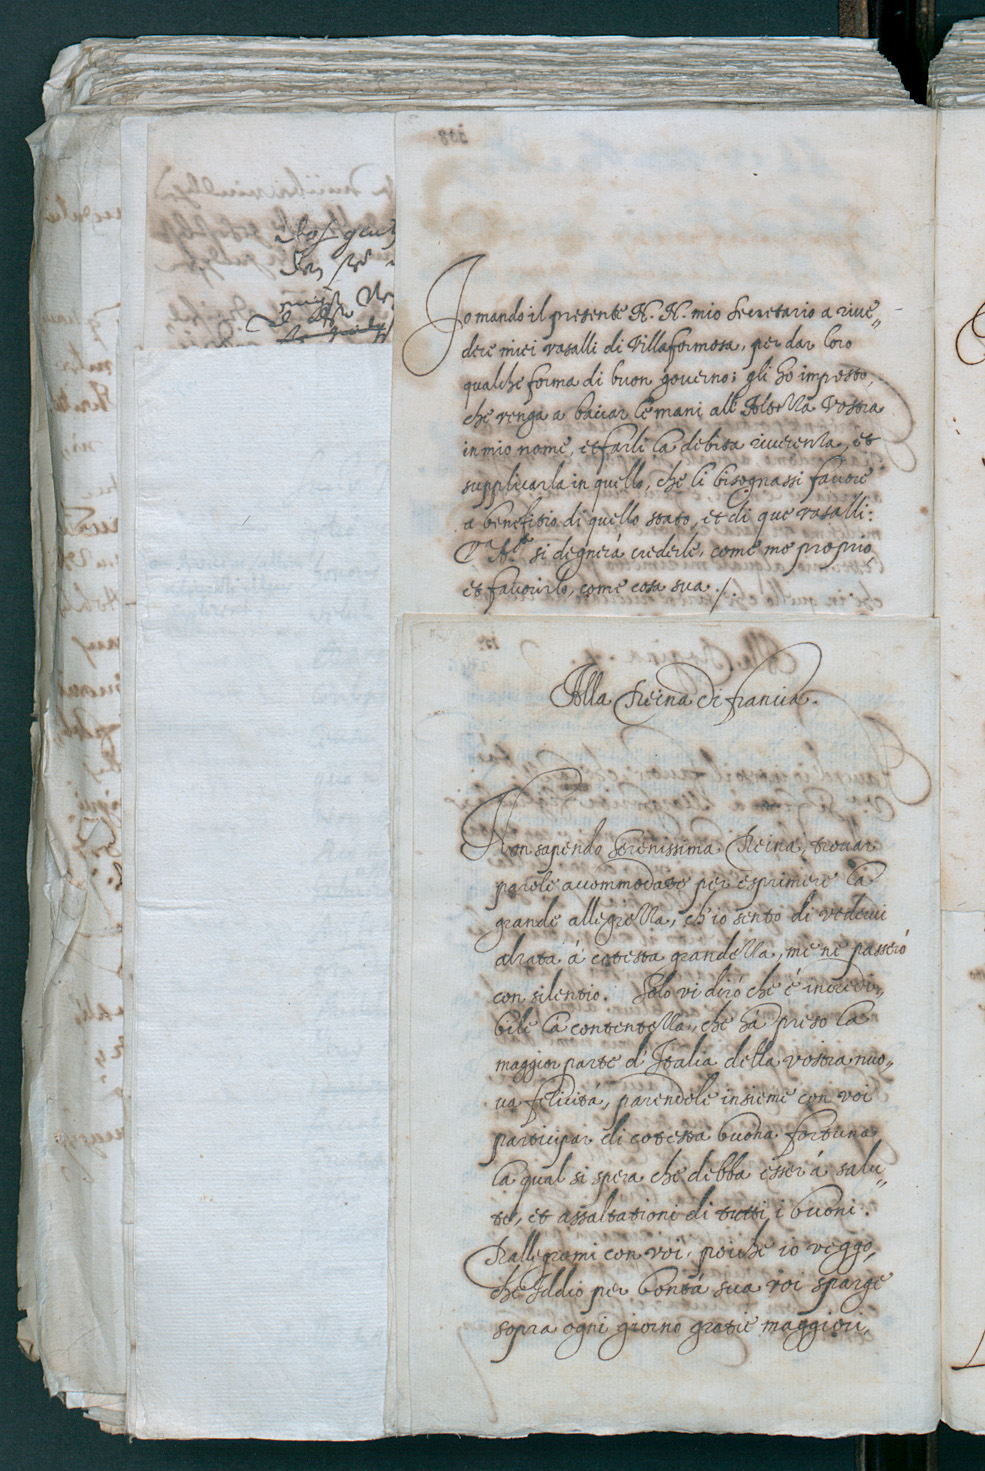 Io mando il presente N. N. mio Secretario a rive„
dere miei vasalli di Villaformosa, per dar loro
qualche forma di buon governo; gli hò imposto,
che venga a baciar le mani all'Altezza Vostra
in mio nome, et farli la debita riverenza, et
supplicarla in quello, che li bisognassi favore
a benefitio di quello stato, et di que vasalli:
V.ª A.ª si degnerà crederle, come me proprio,
et favorirlo, come cosa sua./.
Alla Reina di francia.
Non sapendo Serenissima Reina, trovar
parole accommodate per esprimere la
grande allegrezza, ch'io sento di vedervi
alzata á cotesta grandezza, me ne passeró
con silentio. Solo vi diró che é incredi„
bile la contentezza, che há preso la
maggior parte d'Italia della vostra nuo„
va felicitá, parendole insieme con voi
participar di cotesta buona fortuna
la qual si spera che debba esser á salu„
te, et assaltationi di tutti i buoni.
Rallegrami con voi, poiche io veggo,
che Iddio per bontá sua voi sparge
sopra ogni giorno gratie maggiori,